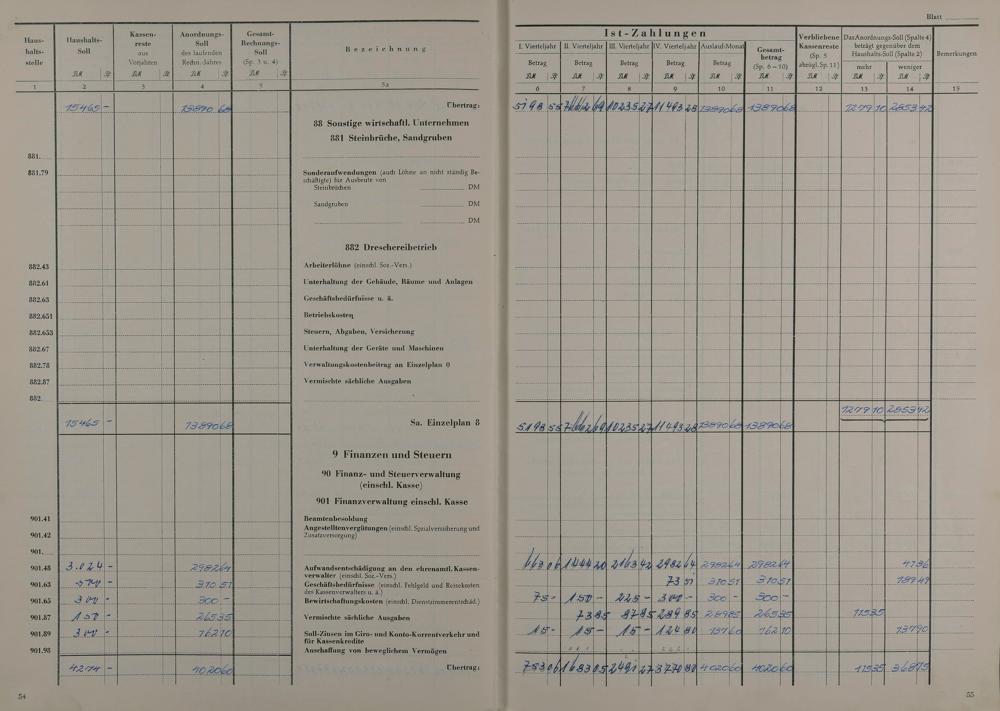 Blatt
Haus-
halts-
stelle
Haushalts-
Soll
Kassen-
reste
aus
Vorjahren
Anordnungs-
Soll
des laufenden
Rechn.-Jahres
Gesamt-
Rechnungs-
Soll
(Sp. 3 u. 4)
Bezeichnung
1 2 3 4 5 5a
15465 - 13890 68 Übertrag:
88 Sonstige wirtschaftl. Unternehmen
881 Steinbrüche, Sandgruben
881.
881.79 Sonderaufwendungen (auch Löhne an nicht ständig Be-
schäftigte) für Ausbeute von
Steinbrüchen DM
Sandgruben DM
DM
882 Dreschereibetrieb
882.43 Arbeiterlöhne (einschl. Soz.-Vers.)
882.61 Unterhaltung der Gebäude, Räume und Anlagen
882.63 Geschäftsbedürfnisse u. ä.
882.651 Betriebskosten
882.653 Steuern, Abgaben, Versicherung
882.67 Unterhaltung der Geräte und Maschinen
882.78 Verwaltungskostenbeitrag an Einzelplan 0
882.87 Vermischte sächliche Ausgaben
882
15465 - 13890 68 Sa. Einzelplan 8
9 Finanzen und Steuern
90 Finanz- und Steuerverwaltung
(einschl. Kasse)
901 Finanzverwaltung einschl. Kasse
901.41 Beamtenbesoldung
901.42 Angestelltenvergütungen (einschl. Sozialversicherung und
Zusatzversorgung)
901.
901.48 3.024 - 2982 64 Aufwandsentschädigung an den ehrenamtl. Kassen-
verwalter (einschl. Soz.-Vers.)
901.63 500 - 310 51 Geschäftsbedürfnisse (einschl. Fehlgeld und Reisekosten
des Kassenverwalters u. ä.)
901.65 300 - 300 - Bewirtschaftungskosten (einschl. Dienstzimmerentschäd.)
901.87 150 - 265 35 Vermischte sächliche Ausgaben
901.89 300 - 162 10 Soll-Zinsen im Giro- und Konto-Korrentverkehr und
für Kassenkredite
901.98 Anschaffung von beweglichem Vermögen
4274 - 4020 60 Übertrag:
54
Ist-Zahlungen
I. Vierteljahr II. Vierteljahr III. Vierteljahr IV. Vierteljahr Auslauf-Monat
Betrag Betrag Betrag Betrag Betrag
Gesamt-
betrag
(Sp. 6-10)
Verbliebene
Kassenreste
(Sp. 5
abzügl. Sp. 11)
Das Anordnungs-Soll (Spalte 4)
beträgt gegenüber dem
Haushalts-Soll (Spalte 2)
mehr weniger
Bemerkungen
6 7 8 9 10 11 12 13 14 15
5198 55 10235 27 11493 28 13890 68 13890 68 1279 10 2853 42
1279 10 2853 42
5198 55 10235 27 11493 28 13890 68 13890 68
663 06 1444 20 2163 42 2982 64 2982 64 2982 64 41 36
73 51 310 51 310 51 189 49
75 - 150 - 225 - 300 - 300 - 300 -
73 85 87 85 265 35 115 35
15 - 15 - 15 - 124 80 162 10 137 90
753 06 1683 05 3770 80 4020 60 4020 60 115 35 368 75
55